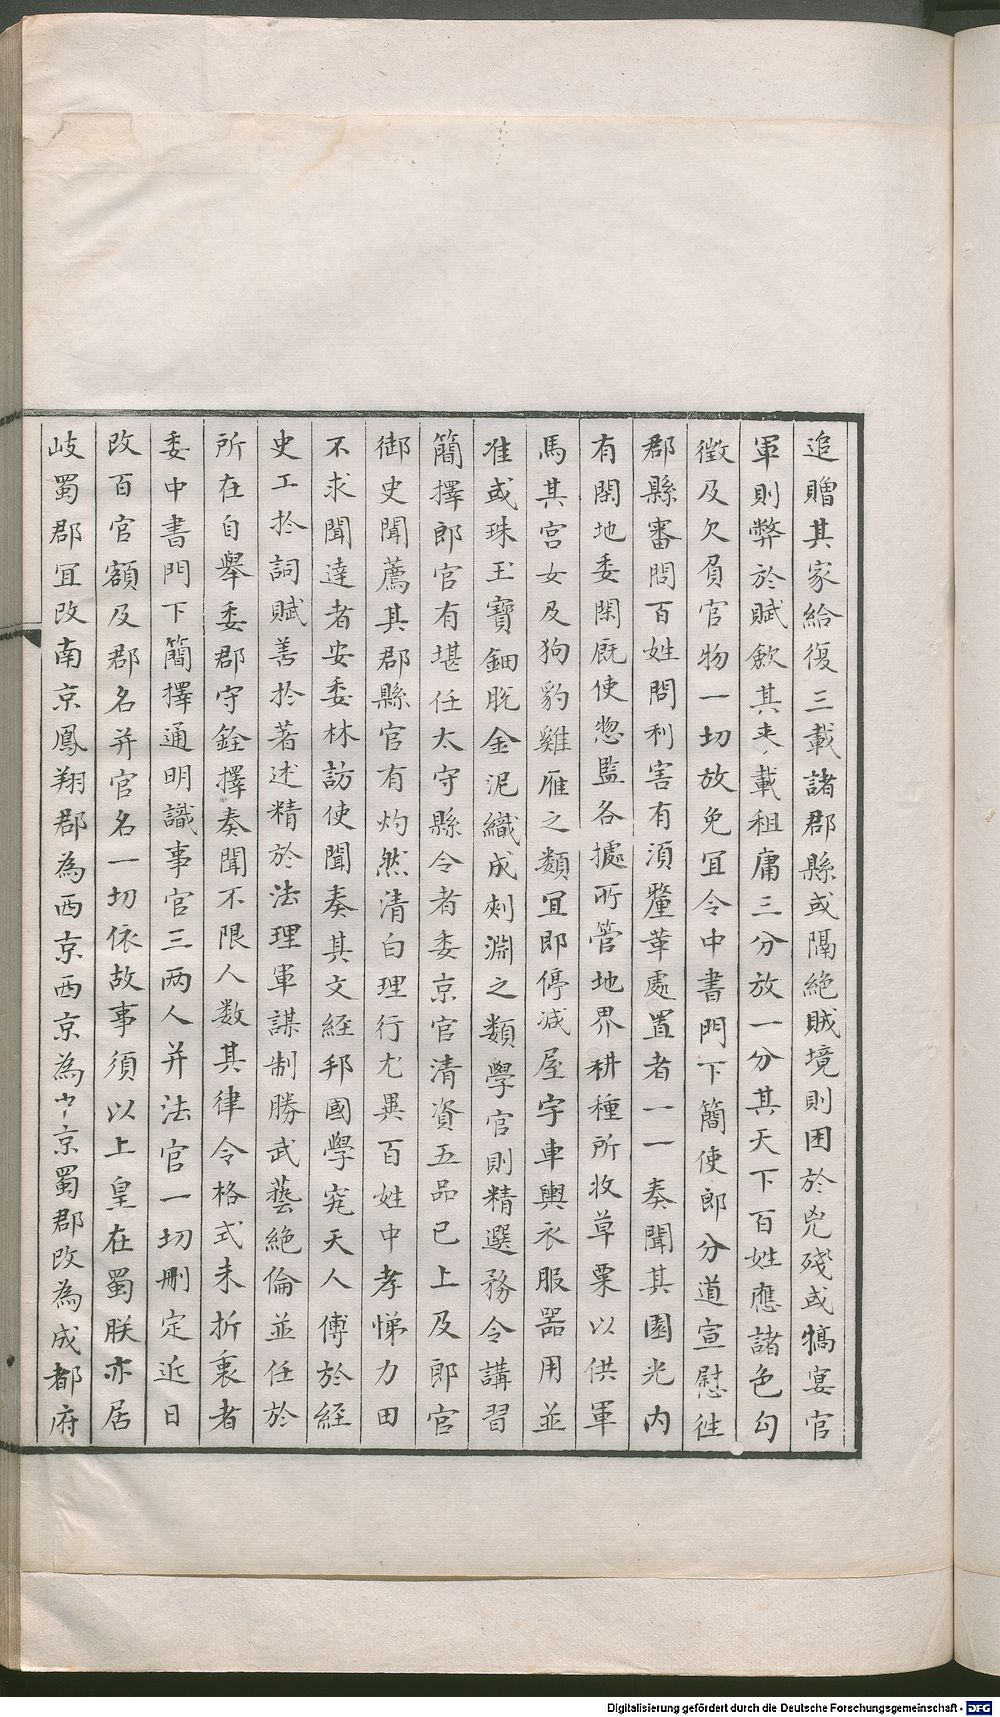 追贈其家給復三載諸郡縣或隔絶賊境則困於兇殘或犒宴官
軍則弊於賦歛其来載租庸三分放一分其天下百姓應諸色勾
徵及欠負官物一切放免宜令中書門下簡使郎分道宣慰徃
郡縣審問百姓問利害有須釐革處置者一一奏聞其園光内
有閑地委閑厩使惣監各㩀所管地界耕種所收草粟以供軍
馬其宫女及狗豹雞雁之類宜即停减屋宇車輿衣服器用並
准或珠玉寶鈿脱金泥織成刾淵之類學官則精選務令講習
簡擇郎官有堪任太守縣令者委京官清資五品已上及郎官
御史聞薦其郡縣官有灼然清白理行尤異百姓中孝悌力田
不求聞達者安委林訪使聞奏其文經邦國學究天人傅於經
史工於詞賦善於著述精於法理軍謀制勝武藝絶倫並任於
所在自舉委郡守銓擇奏聞不限人数其律令格式未折衷者
委中書門下簡擇通明識事官三两人并法官一切刪定近日
改百官額及郡名并官名一切依故事須以上皇在蜀朕亦居
岐蜀郡宜改南京鳳翔郡為西京西京為中京蜀郡改為成都府
Digitalisierung gefördert durch die Deutsche Forschungsgemeinschaft - DFG